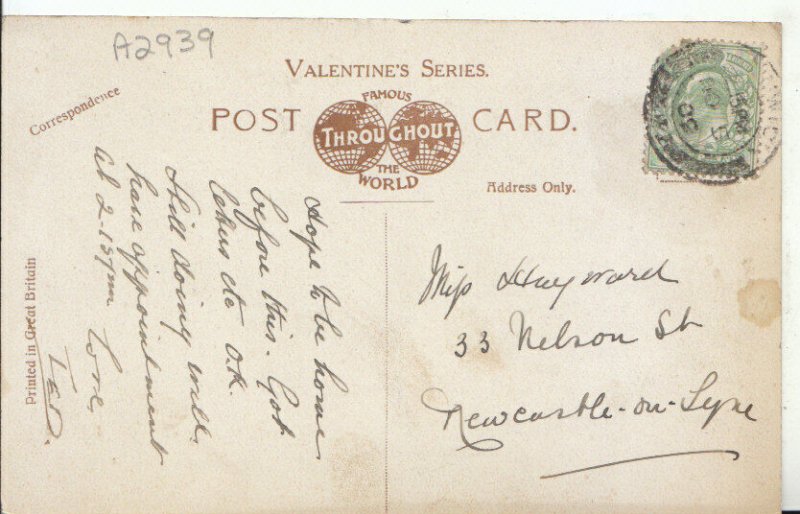 A2939
VALENTINE'S SERIES.
FAMOUS
THROUGHOUT
THE
WORLD
POST CARD.
Correspondence
Address Only.
Printed in Great Britain
Hope to be home
before this. Got
cakes etc O.K.
Still doing well.
have appointment
at 2-15 pm
Love
TED.
Miss Hayward
33 Nelson St
Newcastle-on-Lyne